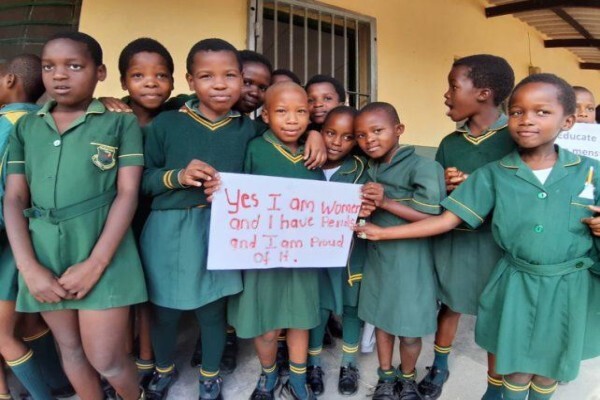 Yes I am Women
and I have Periods
and I am Proud
of it.
Educate
mens